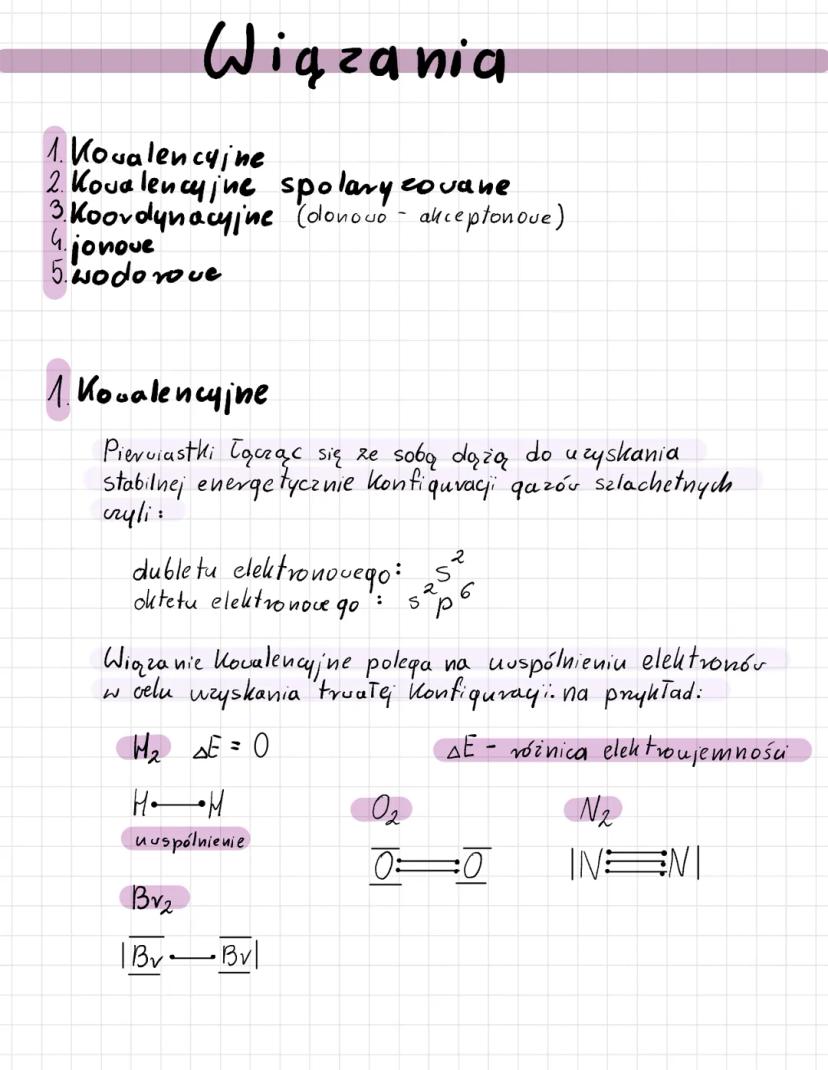 Wiązania
1. Kowalencyjne
2. Kowalencyjne spolaryzowane
3. Koordynacyjne (donowo - akceptonowe)
4. jonowe
5. wodorowe
1. Kowalencyjne
Pierwiastki łącząc się ze sobą dążą do uzyskania
stabilnej energetycznie konfiguracji gazów szlachetnych
czyli:
dubletu elektronowego: s²
oktetu elektronowego: s²p⁶
Wiązanie kowalencyjne polega na uwspólnieniu elektronów
w celu uzyskania trwałej konfiguracji. na przykład:
H₂ ΔE = 0 ΔE - różnica elektroujemności
H•—•H O₂ N₂
uwspólnienie
O=O |N≡N|
Br₂
|Br•—•Br|